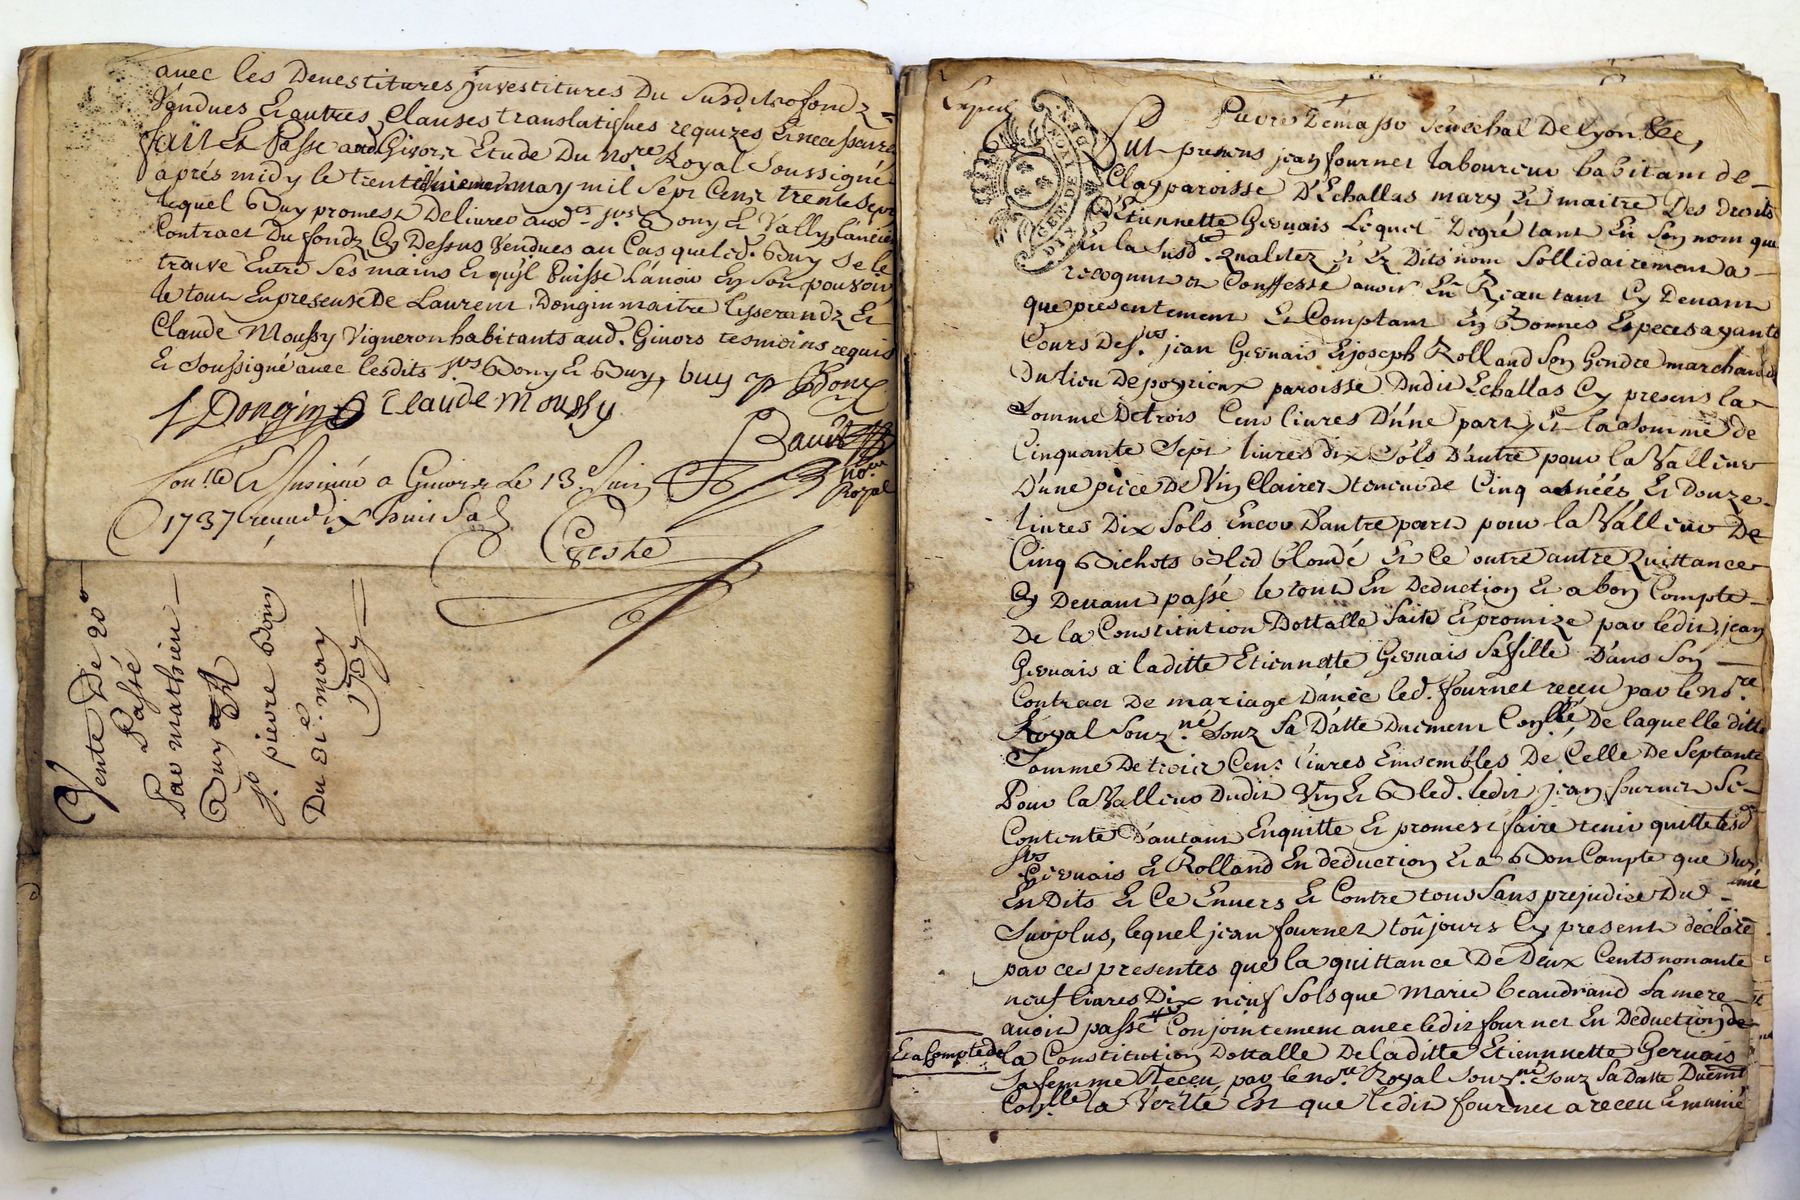 avec les Devestitures Jnvestitures Du susd. fondz
Vendues Et autres Clauses translatifves requizes Et necessaire
fait Et Passé aud Givors Etude Du no.re Royal Soussigné
aprés midy le trente may mil sept Cent trente sept
lequel Buy promest Delivrer ausd.ts s.rs Bony Et Vally lancien
Contract Du fondz Cy Dessus Vendues au Cas que led. Buy se le
trouve Entre ses mains Et qu'jl Puisse Lavoir En son pouvoir
le tout En presense De Laurent Dongin maitre tisserandz Et
Claude Moussy Vigneron habitants aud. Givors tesmoins requis
Et Soussigné avec lesdits s.rs Bony Et Buy, buy P Bony
L Dongin Claude Moussy
Bauit
no.re
Royal
Con.llé Et Jnsinué a Givors Le 13.e Juin
1737 receu dix huit Sols
Geste
Vente De 20
Passé
Par mathieu
Buy
A
s.r pierre Bony
Du 31.e may
1737
Exped
GEN. DE LYON
DIX DEN.
Pierre Demasso senechal De Lyon
fut present jean fournet laboureur habitant de
Clay paroisse D'Echallas mary Et maitre Des droits
D'Etiennette Gervais Lequel Degré tant En son nom que
En la susd.te Qualitez Et Ez Dits nom sollidairement a
recognut et Conffessé avoir Eu Receu tant Cy Devant
que presentement Et Comptant En Bonnes Especes ayants
Cours Des s.rs jean Gervais Et joseph Rolland son Gendre marchands
Du lieu De poyrieux paroisse Dudit Echallas Cy present la
somme De trois Cent livres D'une part, Et la somme de
Cinquante Sept livres dix Sols D'autre pour la Valleur
D'une piece De Vin Clairet teneur de Cinq asnéés, Et Douze
livres Dix Sols Encor D'autre part pour la Valleur De
Cinq Bichots Bled blondé Et Ce outre autre Quittance
Cy Devant passé le tout En Deduction Et a bon Compte
De la Constitution Dottalle faite Et promize par ledit jean
Gervais a laditte Etiennette Gervais Sa fille Dans Son
Contract De mariage D'avec led. fournet receu par le No.re
Royal Souz.né Souz Sa Datte Duement Con.llé, De laquelle ditte
Somme De trois Cent livres Ensembles De Celle De Septante
Pour la Valleur Dudit Vin Et Bled. ledit jean fournet Se
Contente D'autant Enquitte Et promest faire tenir quitte lesd.
s.rs Gervais Et Rolland En deduction Et a Bon Compte que
En Dits Et Ce Envers Et Contre tous Sans prejudice Du
Surplus, lequel jean fournet toûjours Cy present déclare
par ces presentes que la quittance De Deux Cents nonante
neuf livres Dix neuf Sols que Marie beaudrand Sa mere
avoit passé Conjointement avec ledit fournet En Deduction de
Et a Compte de
la Constitution Dottalle De laditte Etiennette Gervais
Sa femme Receu par le no.re Royal Souz.né Souz Sa Datte Duëmt
Con.llé la Verité Est que ledit fournet a receu Et manié